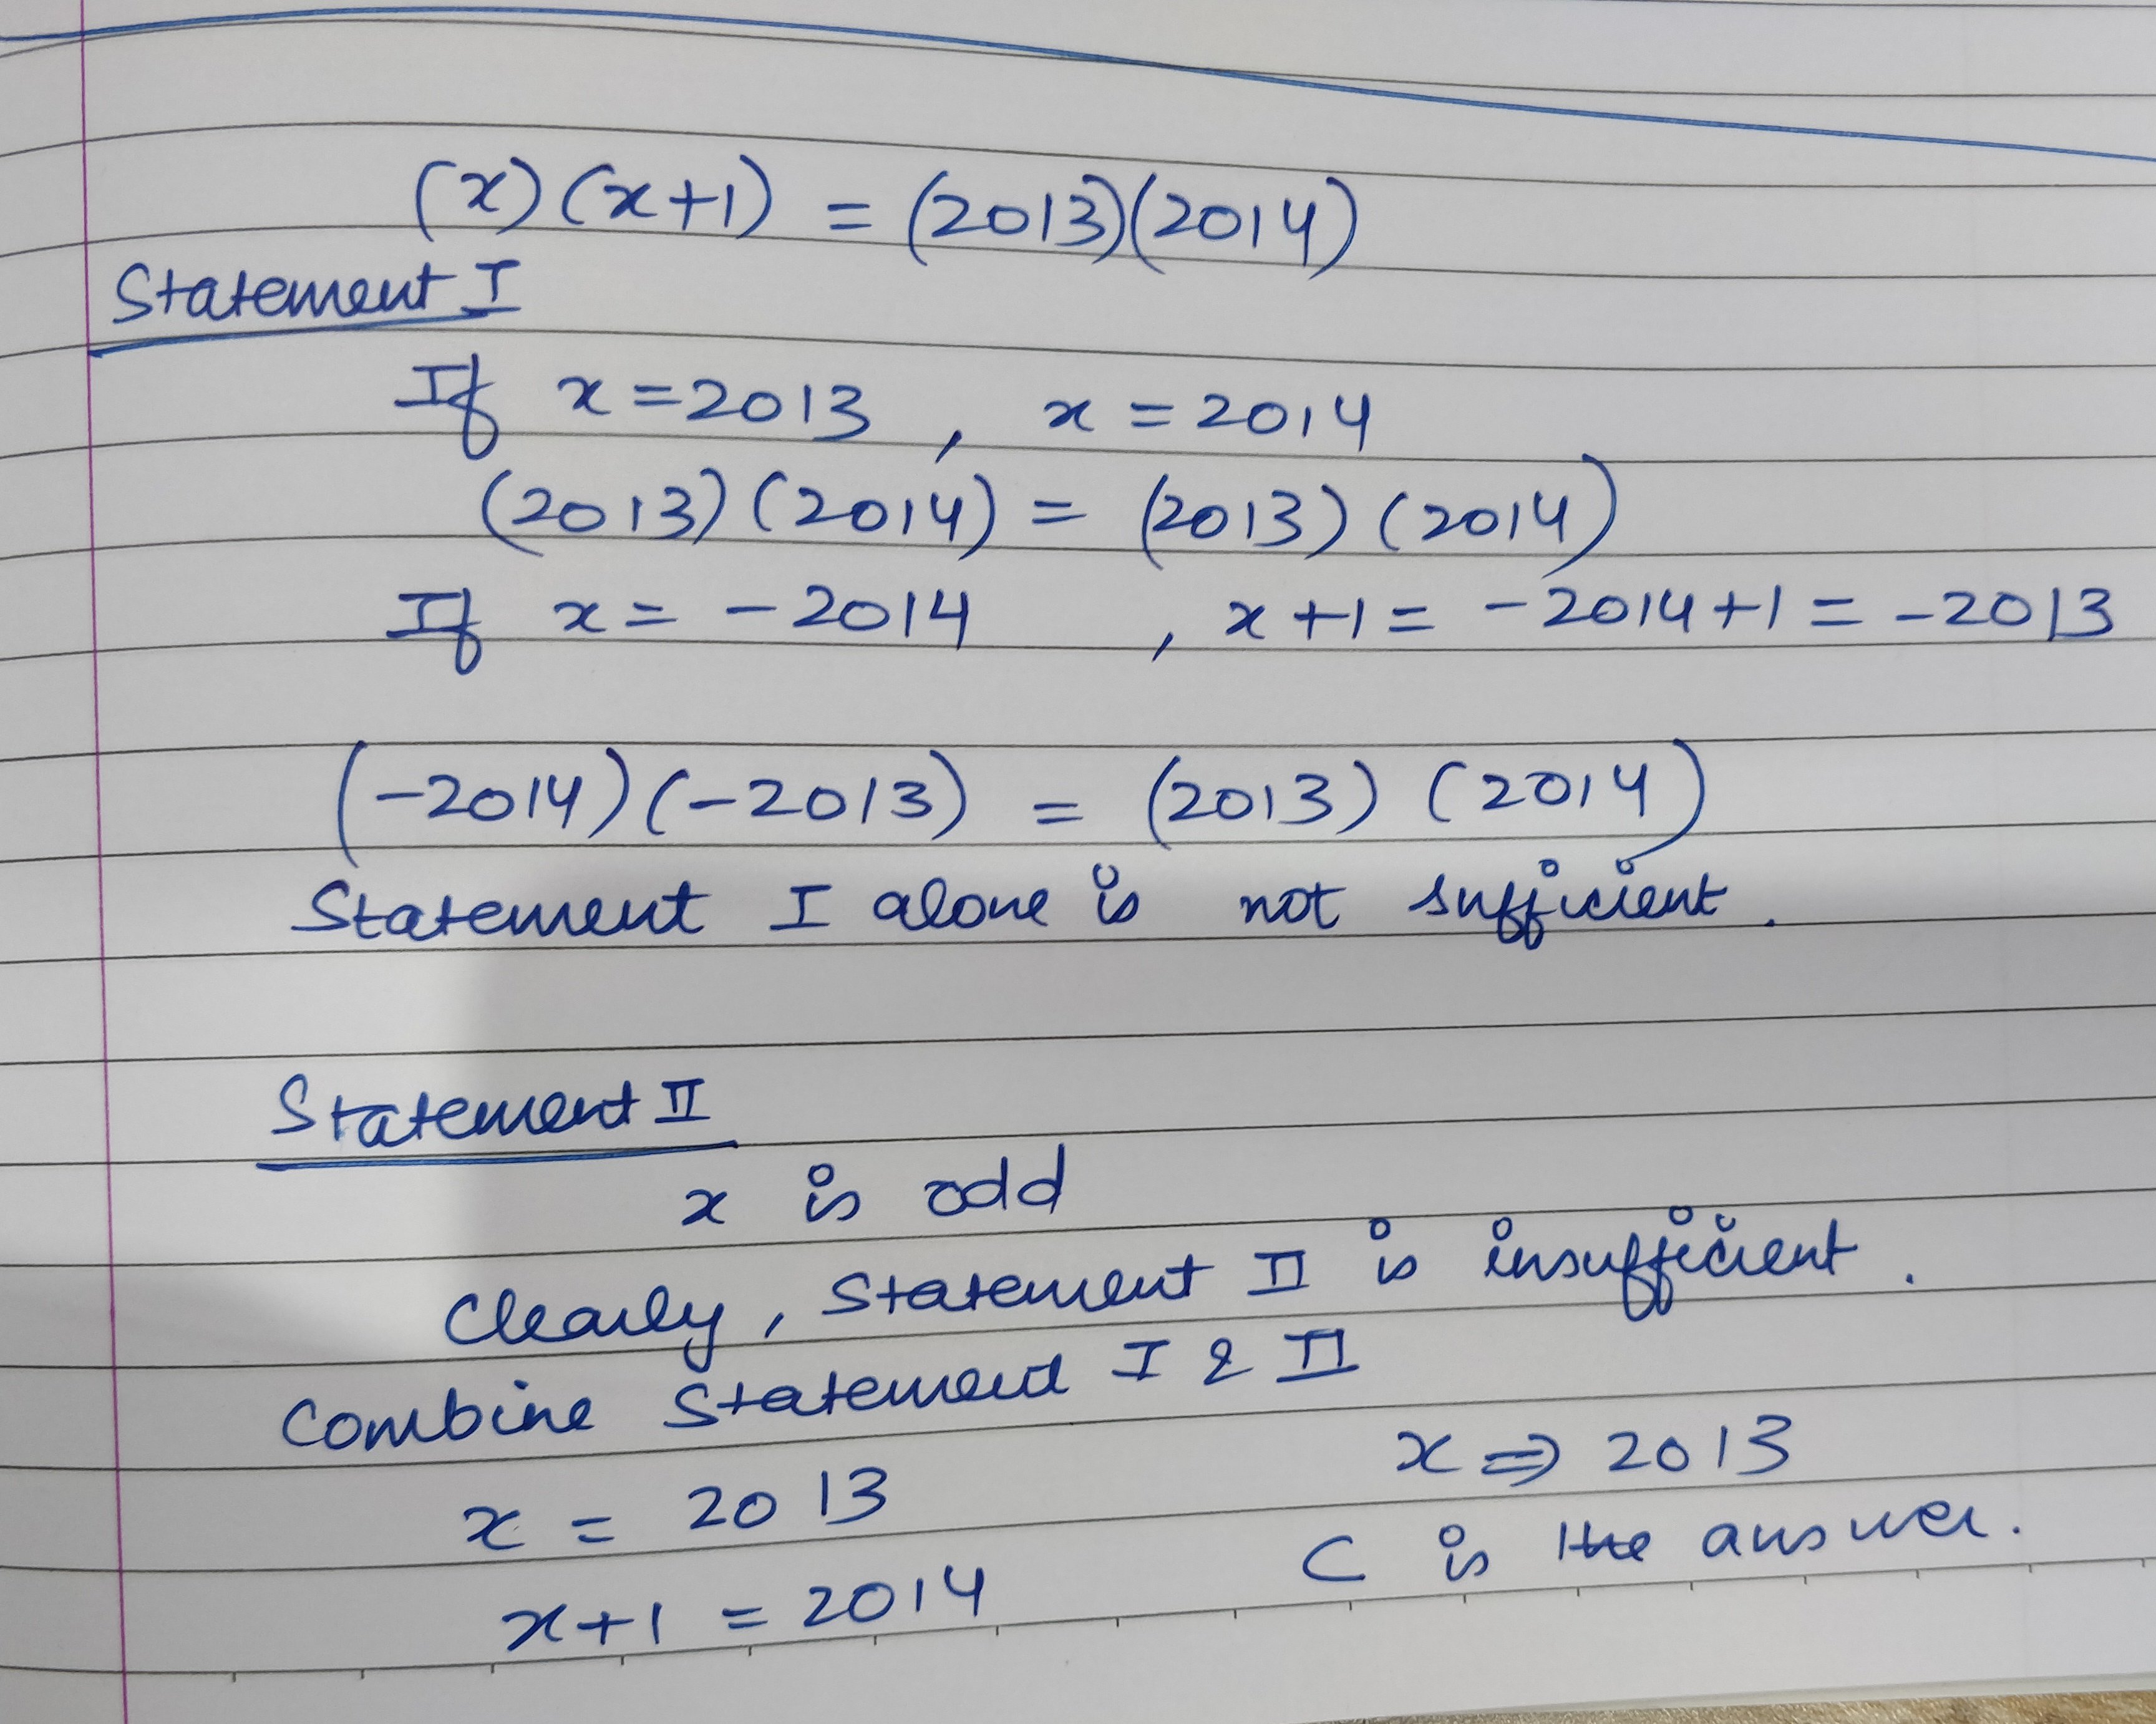 (x)(x+1) = (2013)(2014)
Statement I
If x=2013, x=2014
(2013)(2014) = (2013)(2014)
If x= -2014, x+1= -2014+1= -2013
(-2014)(-2013) = (2013)(2014)
Statement I alone is not sufficient.
Statement II
x is odd
Clearly, Statement II is insufficient.
Combine Statement I & II
x = 2013
x ⇒ 2013
x+1 = 2014
C is the answer.